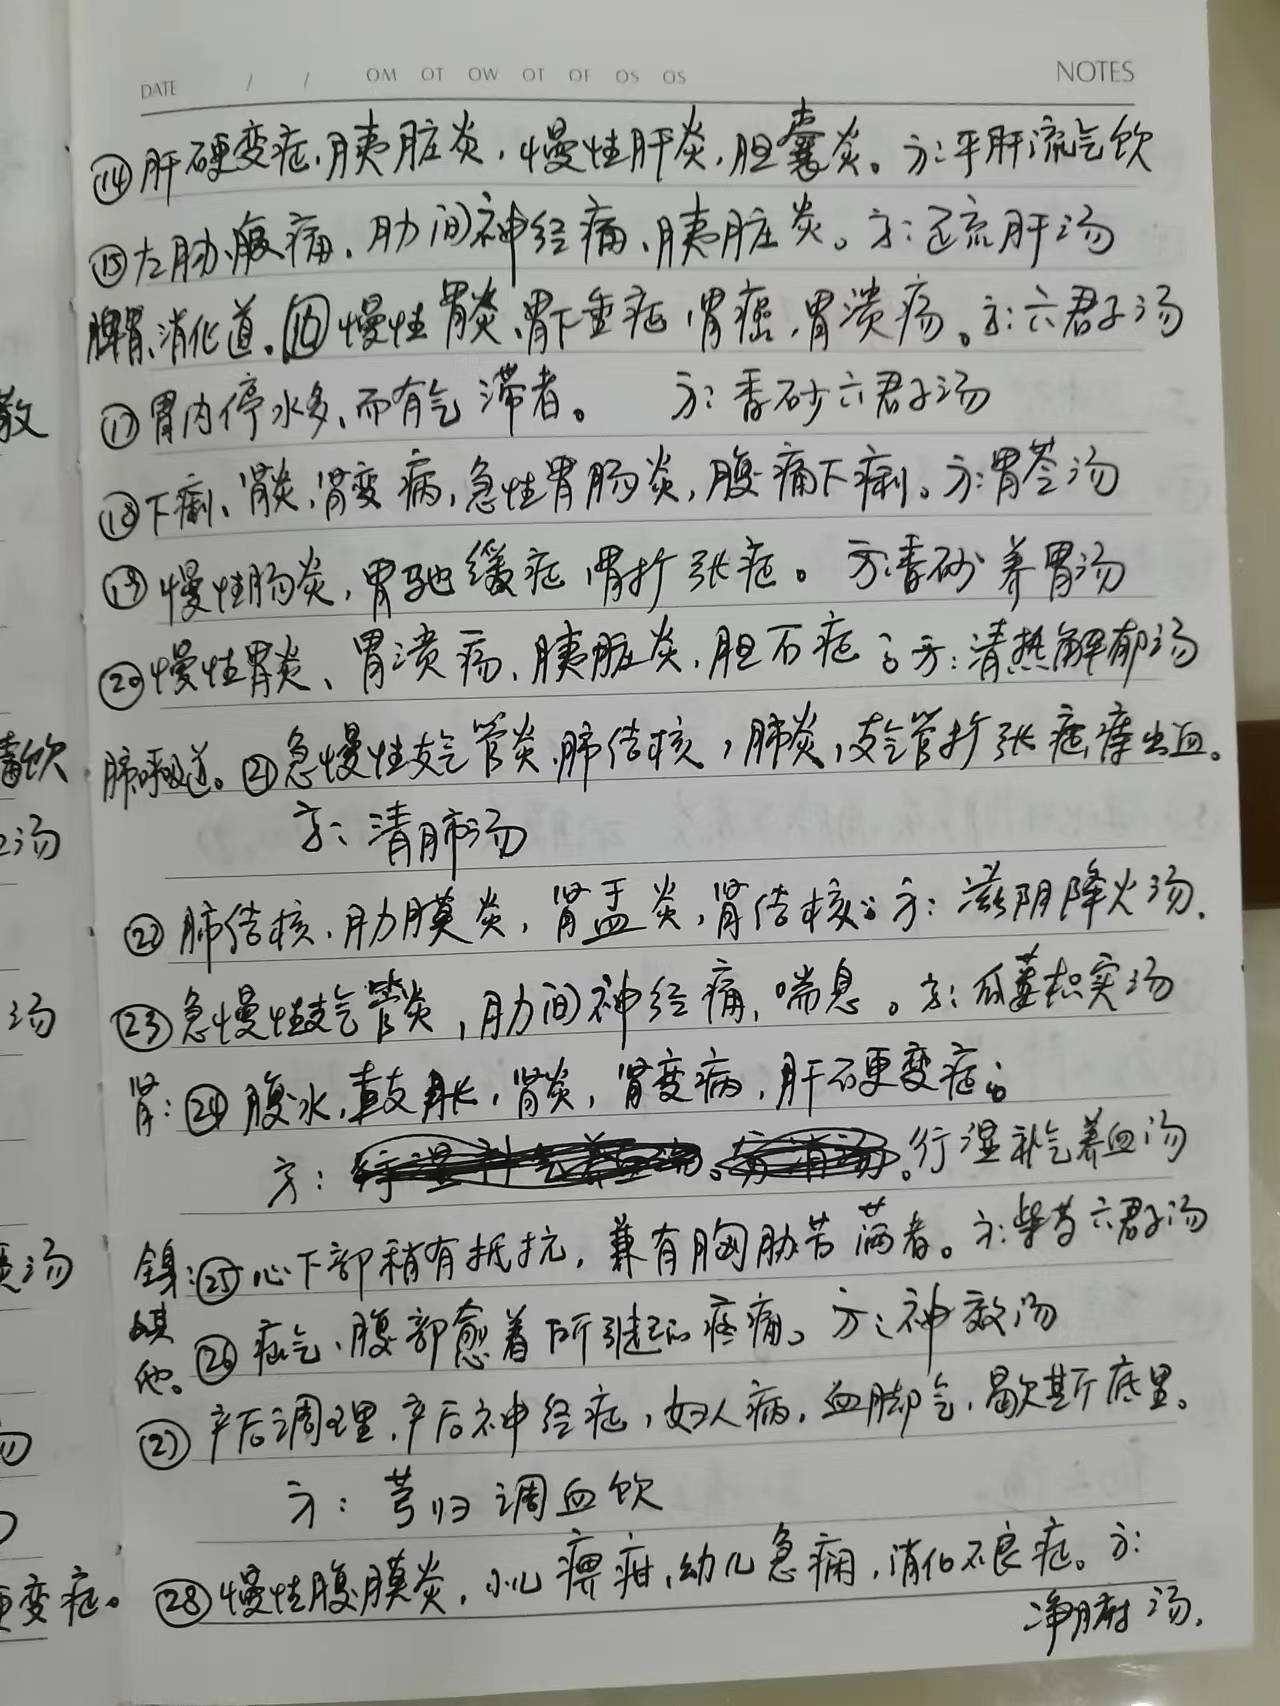 DATE / / OM OT OW OT OF OS OS NOTES
⑭肝硬变症、胰脏炎、慢性肝炎,胆囊炎。方:平肝流气饮
⑮左胁腹痛、肋间神经痛、胰脏炎。方:还流肝汤
脾胃、消化道。⑯慢性胃炎、胃下垂症,胃癌,胃溃疡。方:六君子汤
⑰胃内停水多、而有气滞者。 方:香砂六君子汤
⑱下痢、肾炎,肾变病,急性胃肠炎,腹痛下痢。方:胃苓汤
⑲慢性肠炎,胃弛缓症,胃扩张症。方:香砂养胃汤
⑳慢性胃炎、胃溃疡、胰脏炎,胆石症。方:清热解郁汤
肺呼吸道。㉑急慢性支气管炎、肺结核,肺炎,支气管扩张症、出血。
方:清肺汤
㉒肺结核,肋膜炎,肾盂炎,肾结核。方:滋阴降火汤.
㉓急慢性支气管炎,肋间神经痛,喘息。方:瓜蒌枳实汤
肾:㉔腹水,鼓胀,肾炎,肾变病,肝硬变症。
方: 行湿补气养血汤
全身:㉕心下部稍有抵抗,兼有胸胁苦满者。方:柴芍六君子汤
其他。㉖疝气、腹部愈着所引起的疼痛。方:神效汤
㉗产后调理,产后神经症,妇人病,血脚气,歇斯底里。
方:芎归调血饮
㉘慢性腹膜炎,小儿痞疳,幼儿急痫,消化不良症。方:
净腑汤.
散
饮
汤
汤
汤
变症。